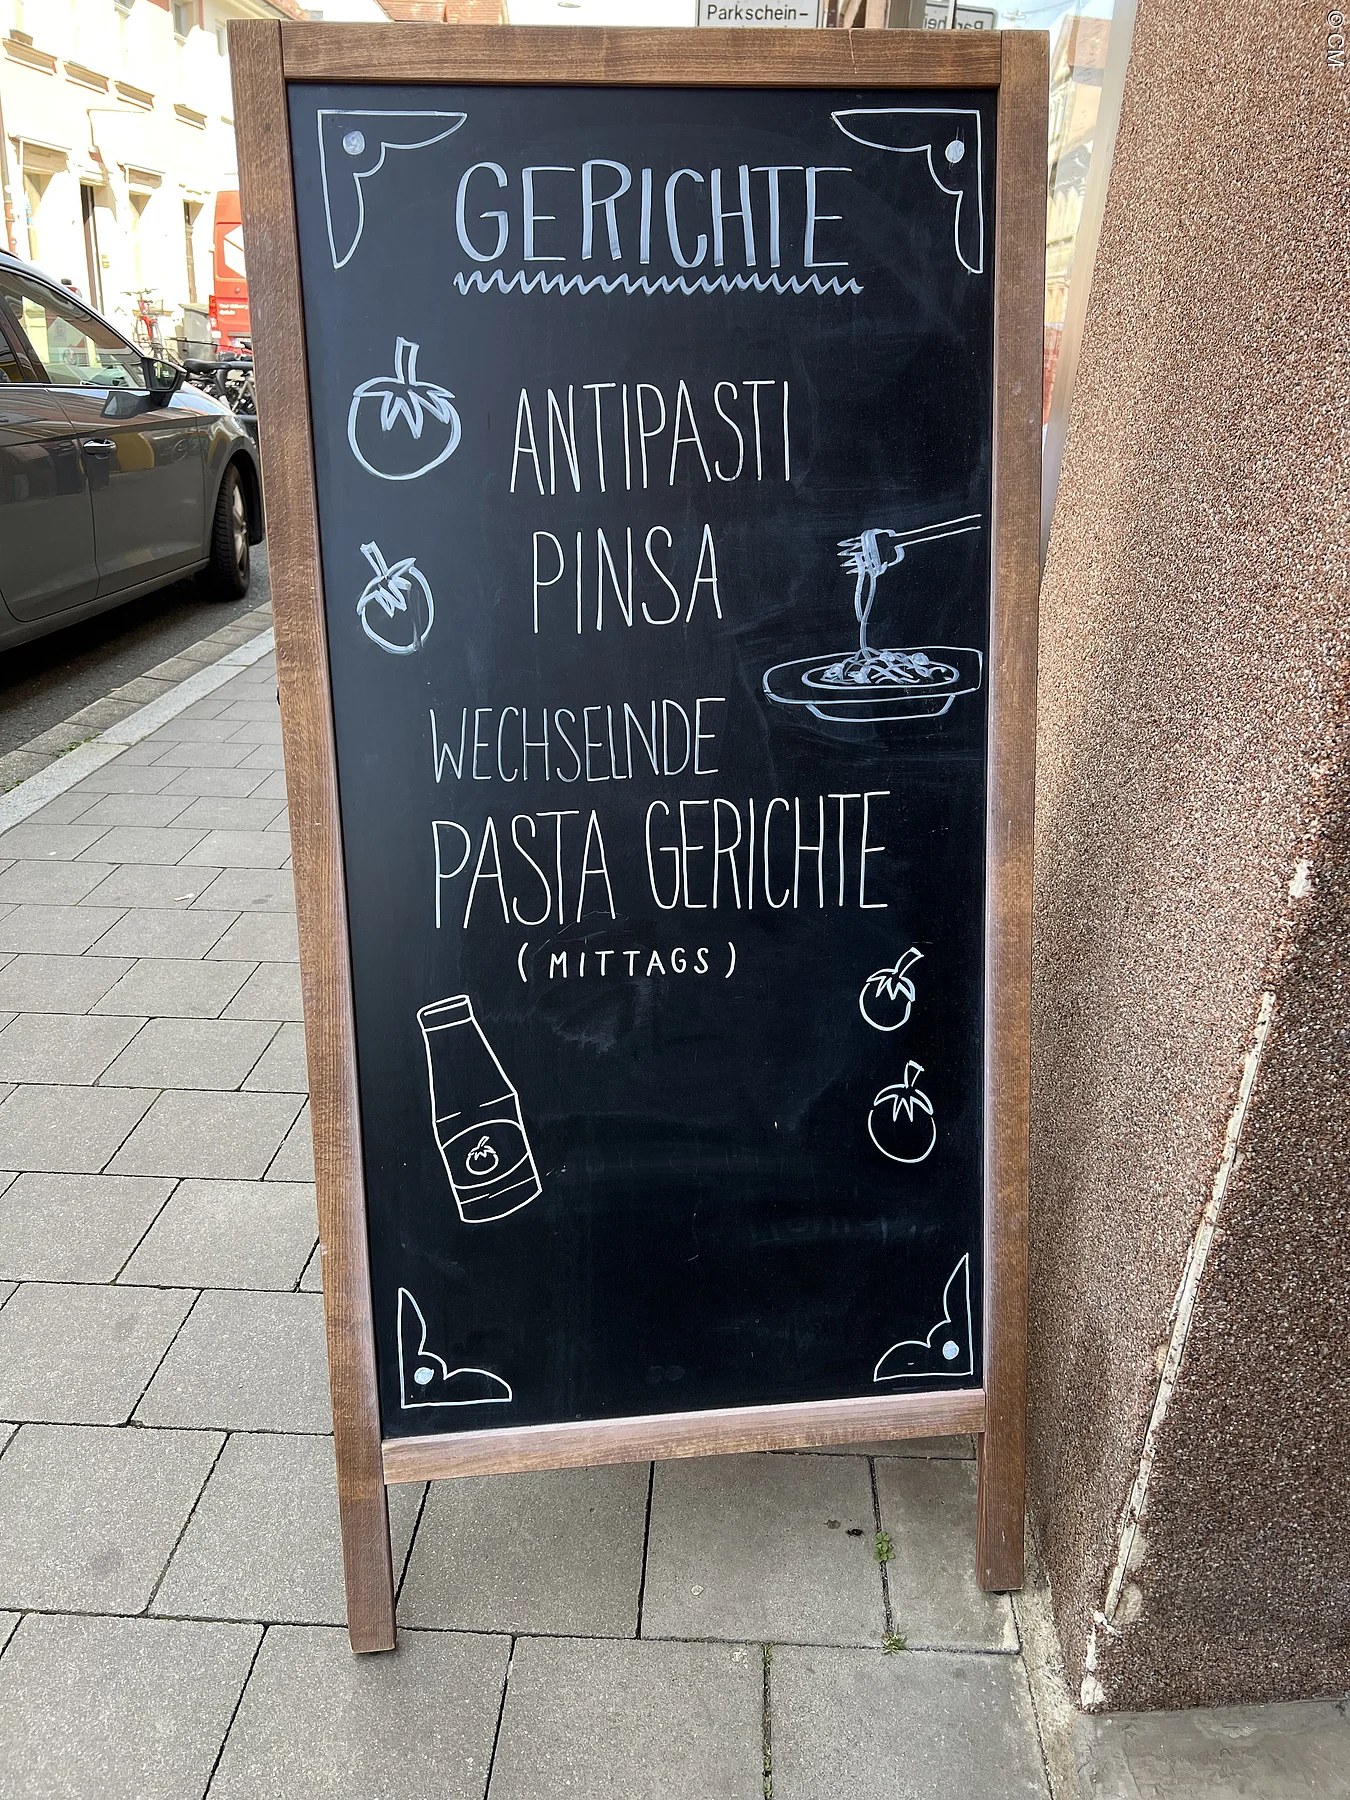 Parkschein-
© CM
GERICHTE
ANTIPASTI
PINSA
WECHSELNDE
PASTA GERICHTE
(MITTAGS)